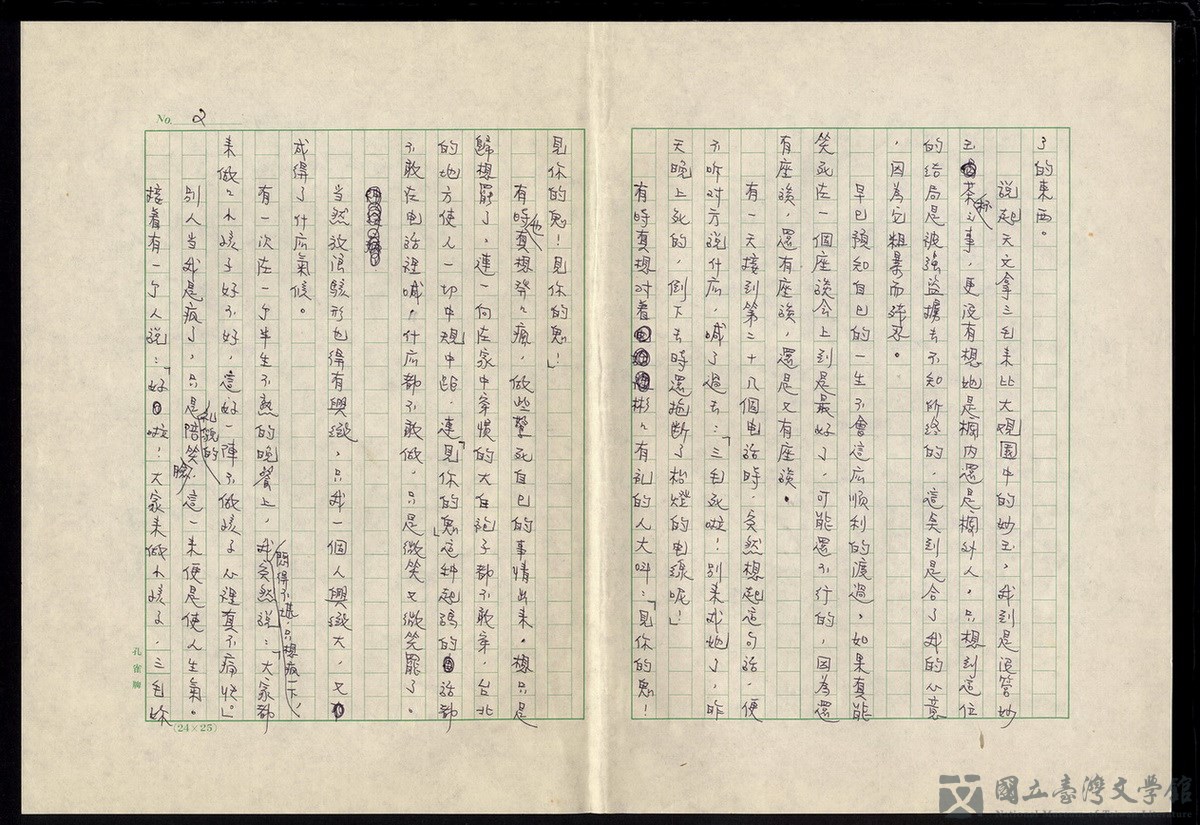 了的東西。
說起天文拿三毛來比大觀園中的妙玉，我到是沒管妙
玉茶之事，更沒有想她是檻內還是檻外人，只想到這位
的結局是被強盜擄去不知所終的，這矣到是合了我的心意
，因為它粗暴而殘忍。
早已預知自己的一生不會這広順利的渡過，如果真能
笑死在一個座談会上到是最好了，可能還不行的，因為還
有座談，還有座談，還是又有座談。
有一天接到第二十几個电話時，突然想起這句話，便
不吩对方說什広，喊了過去：「三毛死啦！別來求她了，昨
天晚上死的，倒下去時還拖断了枱燈的电線呢！」
有時真想对着彬彬有礼的人大叫：「見你的鬼！
No. 2
見你的鬼！見你的鬼！」
有時也真想發發瘋，做些驚死自己的事情出來，想只是
歸想罷了，連一向在家中穿慣的大白袍子都不敢穿，台北
的地方使人一切中規中距，連「見你的鬼」這种起碼的話都
不敢在电話裡喊，什広都不敢做，只是微笑又微笑罷了。
当然放浪駭形也得有興緻，只我一個人興緻大，又
成得了什広氣候。
有一次在一个半生不熟的晚餐上，我悶得不堪，只想瘋一下，突然說：「大家都
來做做小孩子好不好，這好一陣不做孩子心裡真不痛快。」
別人当我是瘋了，只是禮貌的陪笑臉，這一來便是使人生氣。
接着有一个人說：「好啦！大家來做小孩子，三毛妳
孔雀牌
(24×25)
國立臺灣文學館
National Museum of Taiwan Literature